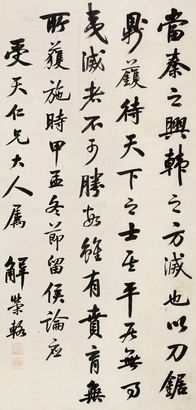 當秦之興韓之方滅也以刀鋸
鼎鑊待天下之士其平居無事
夷滅者不可勝數雖有賁育無
所獲施時甲孟冬節留侯論應
受天仁兄大人屬 解榮輅